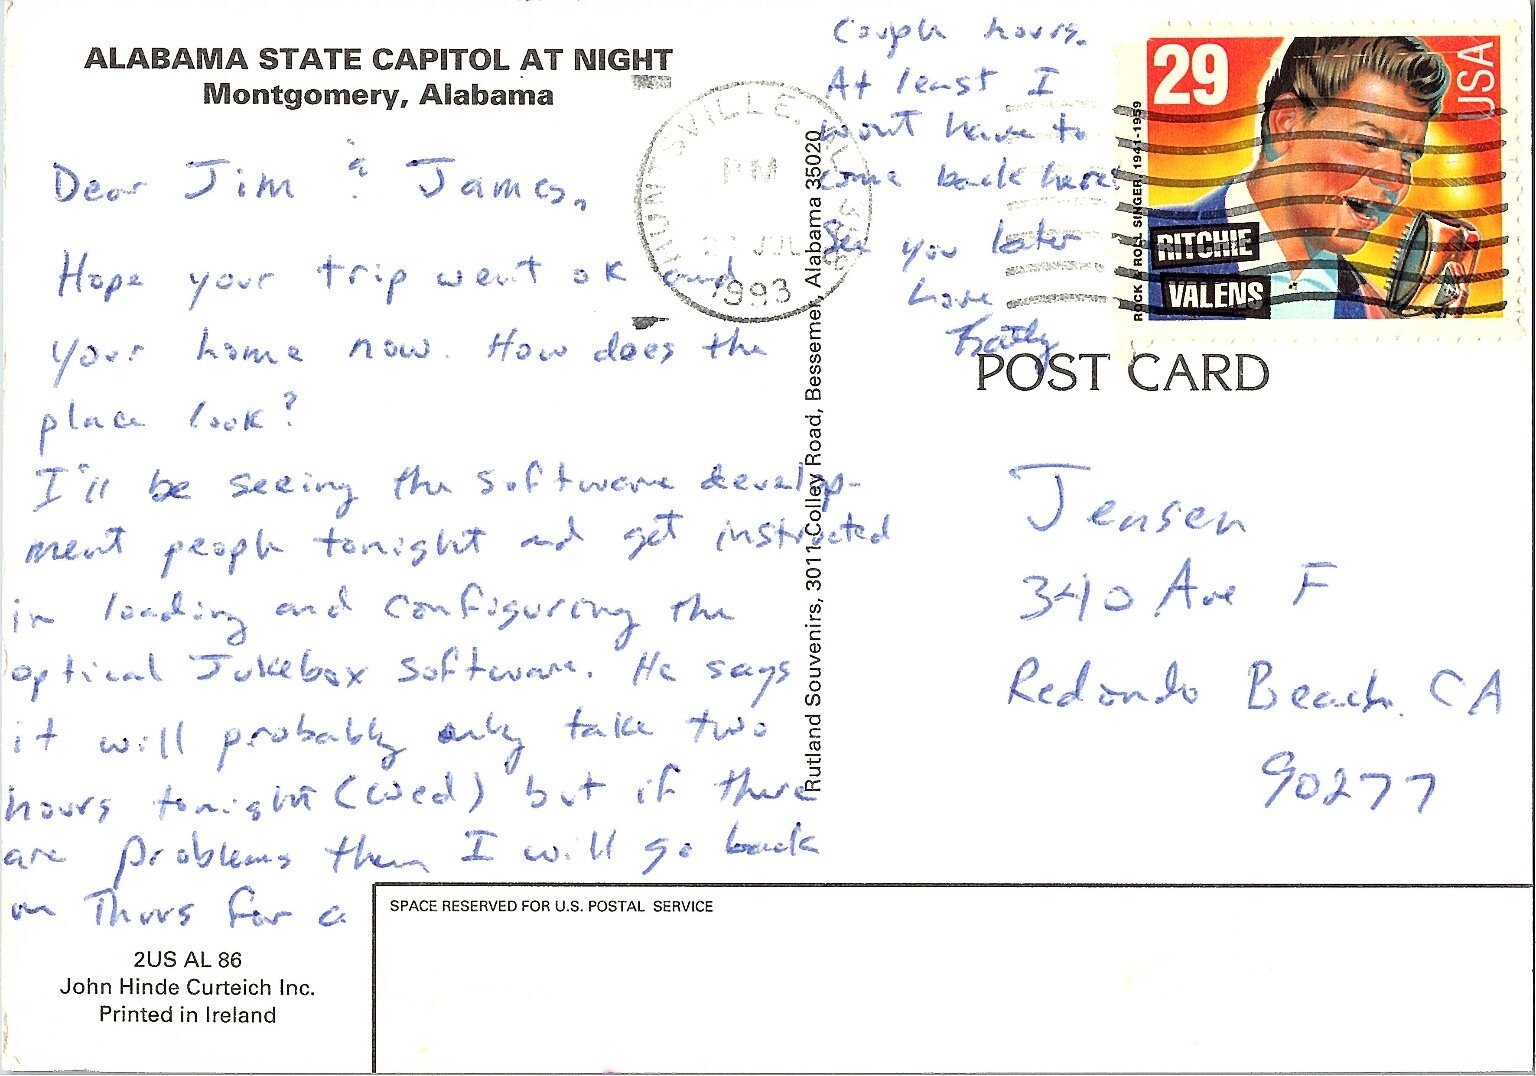 ALABAMA STATE CAPITOL AT NIGHT
Montgomery, Alabama
Dear Jim & James,
Hope your trip went ok and
your home now. How does the
place look?
I'll be seeing the software develop-
ment people tonight and get instructed
in loading and configuring the
optical Jukebox software. He says
it will probably only take two
hours tonight (Wed) but if there
are problems then I will go back
on Thurs for a
couple hours.
At least I
wont have to
come back here!
See you later
Love
2US AL 86
John Hinde Curteich Inc.
Printed in Ireland
Rutland Souvenirs, 3011 Colley Road, Bessemer, Alabama 35020
HUNTSVILLE, AL
PM
JUL
1993
29
USA
ROCK & ROLL SINGER, 1941-1959
RITCHIE
VALENS
POST CARD
Jensen
340 Ave F
Redondo Beach, CA
90277
SPACE RESERVED FOR U.S. POSTAL SERVICE